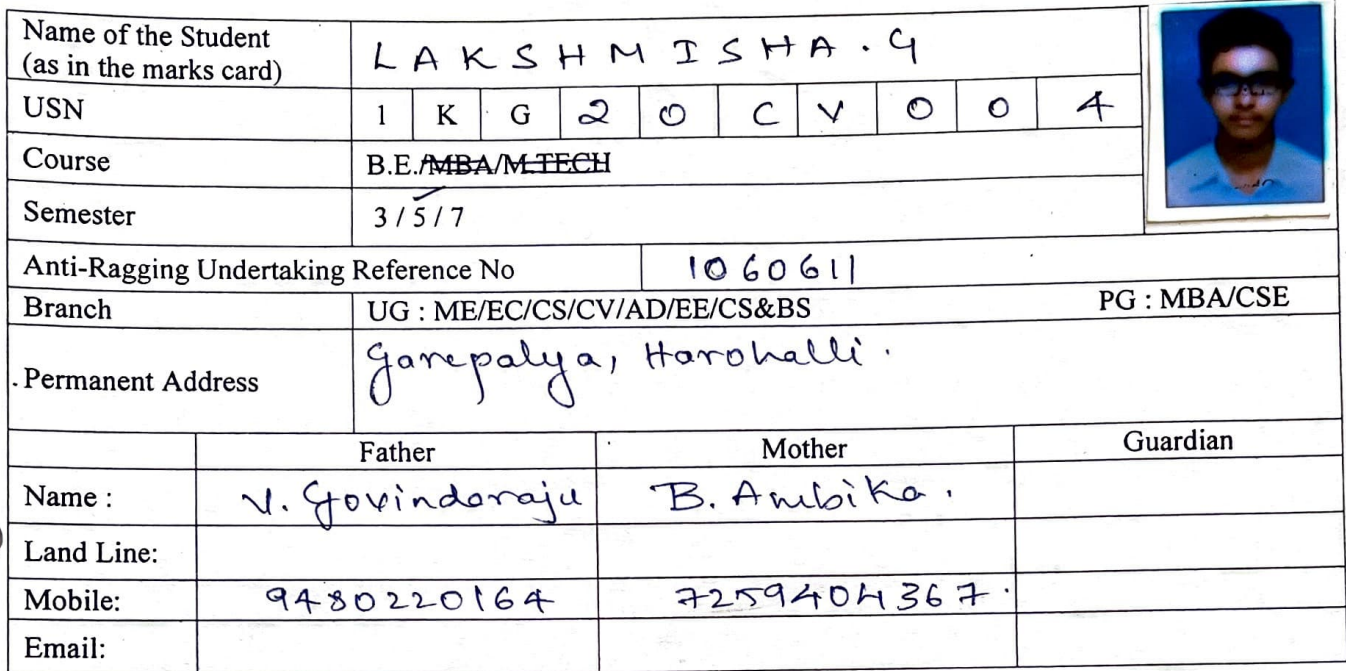 Name of the Student
(as in the marks card)
LAKSHMISHA.G
USN
1 K G 2 0 C V 0 0 4
Course
B.E./MBA/M.TECH
Semester
3 / 5 / 7
Anti-Ragging Undertaking Reference No
1060611
Branch
UG : ME/EC/CS/CV/AD/EE/CS&BS
PG : MBA/CSE
Permanent Address
Garepalya, Harohalli.
Father Mother Guardian
Name : V. Govindaraju B. Ambika.
Land Line:
Mobile: 9480220164 7259404367.
Email: